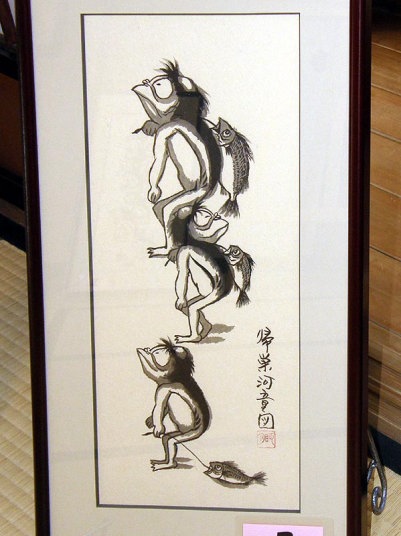 帰巣河童図